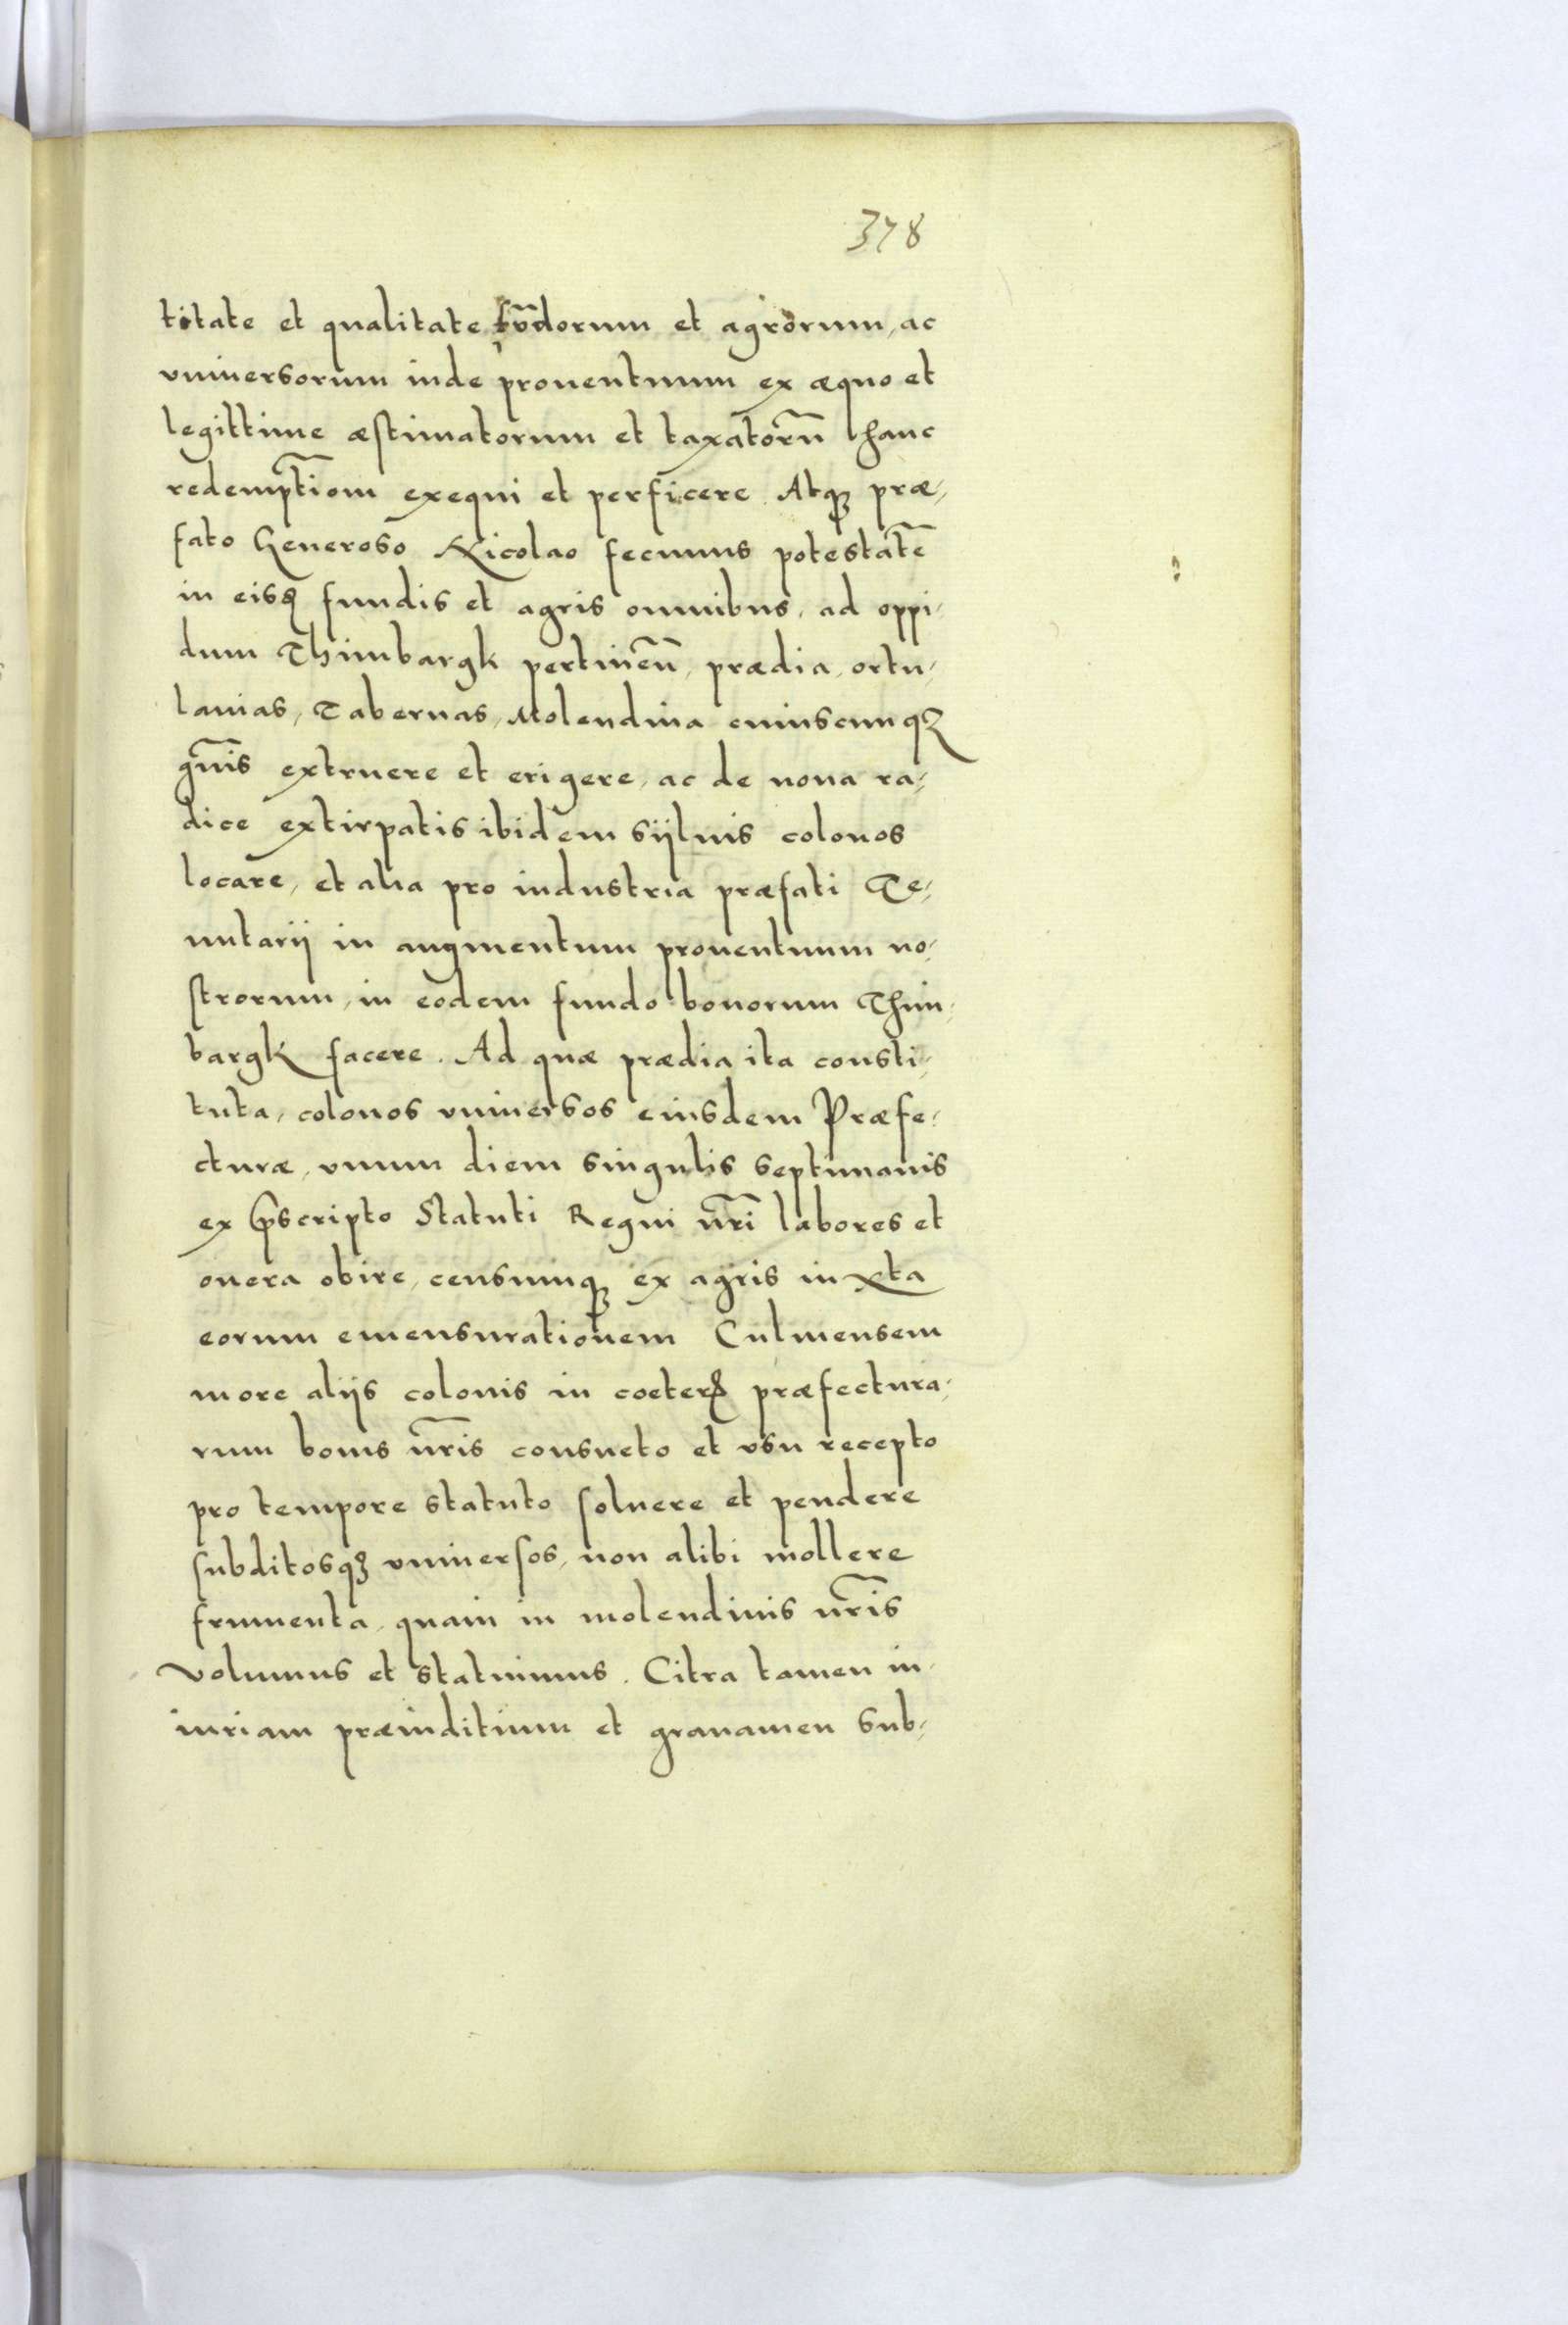 378
titate et qualitate fūdorum et agrorum, ac
vniuersorum inde prouentuum ex æquo et
legittime æstimatorum et taxatorū hanc
redemptiom̄ exequi et perficere. Atqꝫ præ-
fato Generoso Nicolao fecimus potestatē
in eisdꝫ fundis et agris omnibus, ad oppi-
dum Thimbargk pertineñ, prædia, ortu-
lanias, Tabernas, Molendina cuiuscunqꝫ
gn̄is extruere et erigere, ac de noua ra-
dice extirpatis ibidem sÿluis colonos
locare, et alia pro industria præfati Te-
nutarij in augmentum prouentuum no-
strorum, in eodem fundo bonorum Thim-
bargk facere. Ad quæ prædia ita consti-
tuta, colonos vniuersos eiusdem Præfe-
cturæ, vnum diem singulis septimanis
ex p̄scripto Statuti Regni nr̄i labores et
onera obire, censumqꝫ ex agris iuxta
eorum emensurationem Culmensem
more alijs colonis in coeterꝭ præfectura-
rum bonis nr̄is consueto et vsu recepto
pro tempore statuto soluere et pendere
subditosqꝫ vniuersos, non alibi mollere
frumenta, quam in molendinis nr̄is
volumus et statuimus. Citra tamen in-
iuriam præiuditium et grauamen sub-